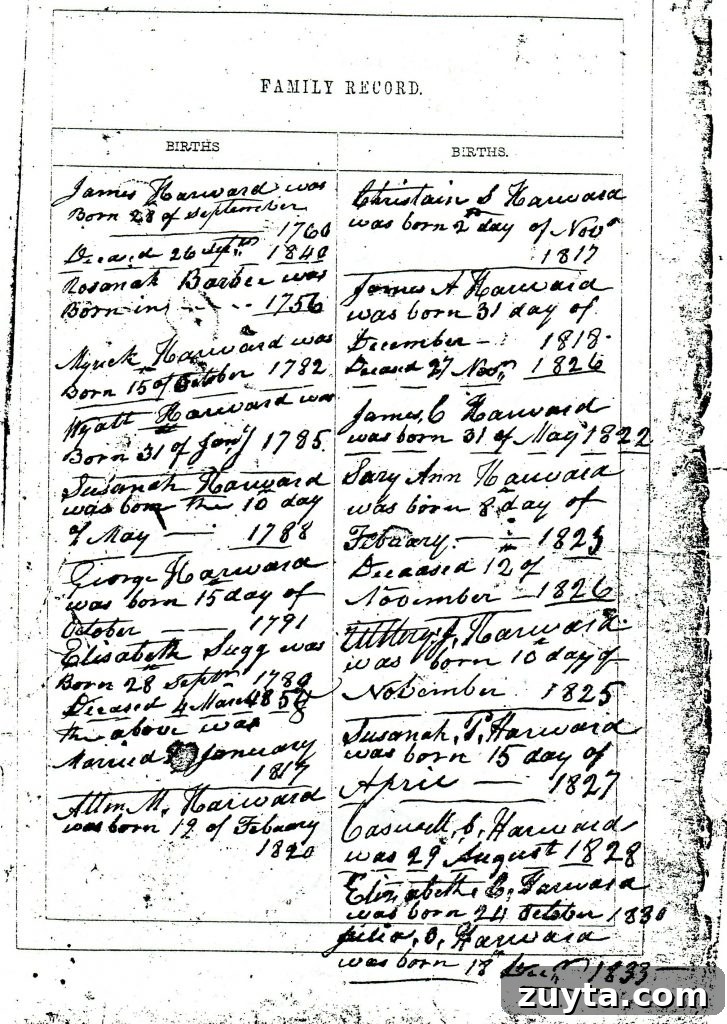 FAMILY RECORD.
BIRTHS
James Harward was
Born 28 of September
1760
Deceased 26 Sept 1840
Rosanah Barbee was
Born in - - - 1756
Myrick Harward was
Born 15 of October 1782
Wyatt Harward was
Born 31 of Jany 1785.
Susanah Harward
was born the 10 day
of May — 1788
George Harward
was born 15 day of
October — 1791
Elisabeth Sugg was
Born 28 Septm 1789
Deceased 4 March
the above was
Married January
1817
Allen M. Harward
was born 19 of Febuary
1820
BIRTHS.
Christain S Harward
was born 2 day of Nov
1817
James A Harward
was born 31 day of
December - 1818
Deceased 27 Nov 1826
James, C Harward
was born 31 of May 1822
Sary Ann Harward
was born 8 day of
Febuary - 1823
Deceased 12 of
November - 1826
Harward
was born 10 day of
November 1825
Susanah, P, Harward
was born 15 day of
April — 1827
Caswell, S, Harward
was 29 August 1828
Elizabeth, C, Harward
was born 24 October 1830
Julia, Harward
was born 18 Decm 1833
zuyta.com